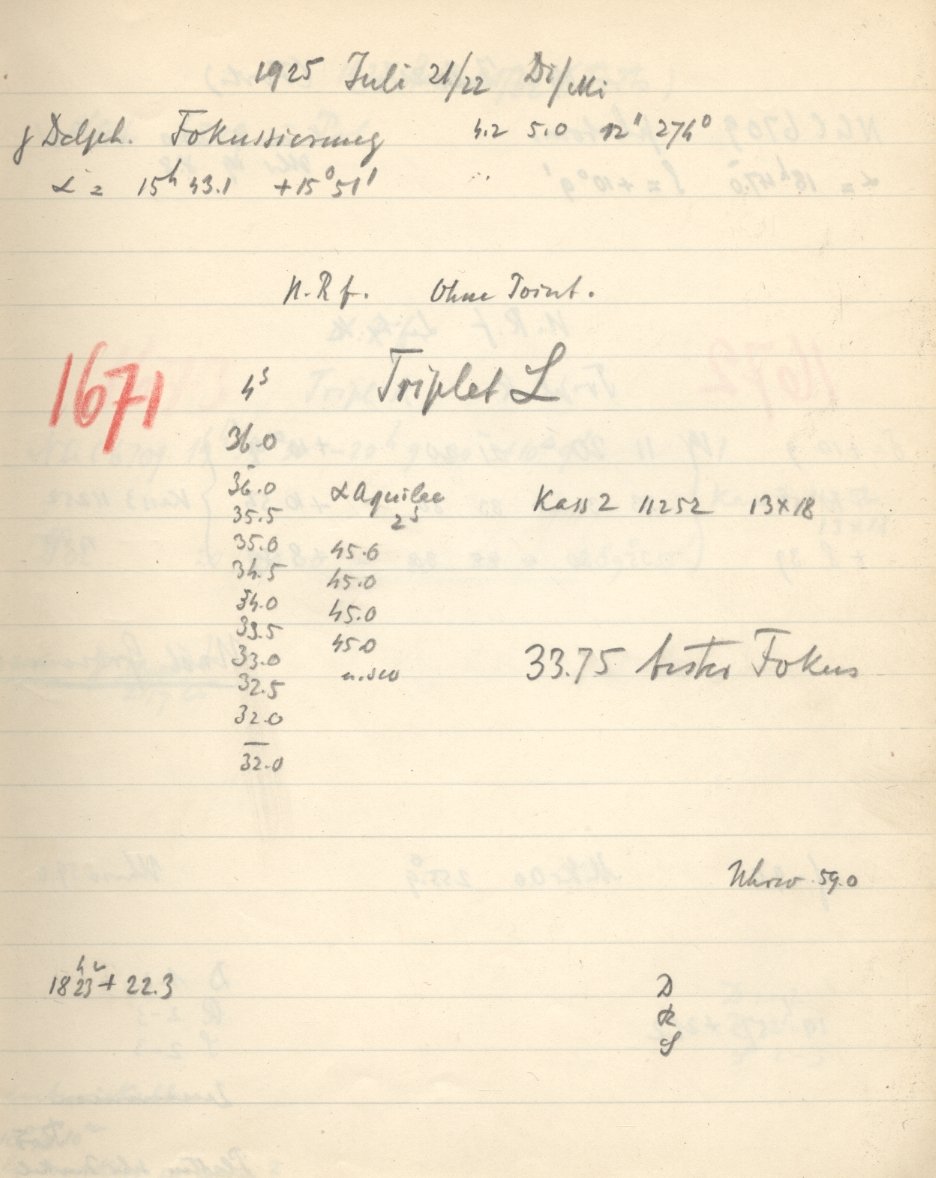 1925 Juli 21/22 Di/Mi
γ Delph. Fokussierung 4.2 5.0 12" 274°
α = 15h 43.1 +15° 51'
N.R.f. Ohne Point.
1671 4s Triplet L
36.0
36.0 α Aquilae Kass 2 11252 13×18
35.5 2s
35.0 45.0
34.5 45.0
34.0 45.0
33.5 45.0
33.0 33.75 bester Fokus
32.5
32.0
32.0
Uhr 59.0
18 23 + 22.3 D
R
S